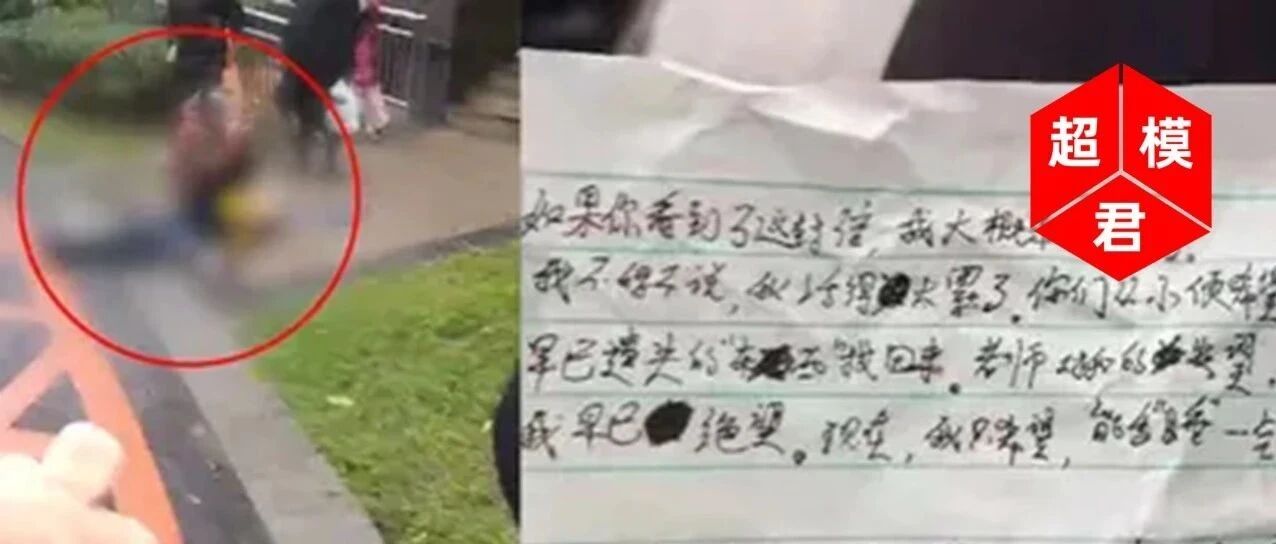 超模君
如果你看到了这封信,我大概
我不得不说,我活得太累了。你们从小便希望
早已遗失的"东西"找回来。老师对我的失望,
我早已绝望。现在,我只希望,能